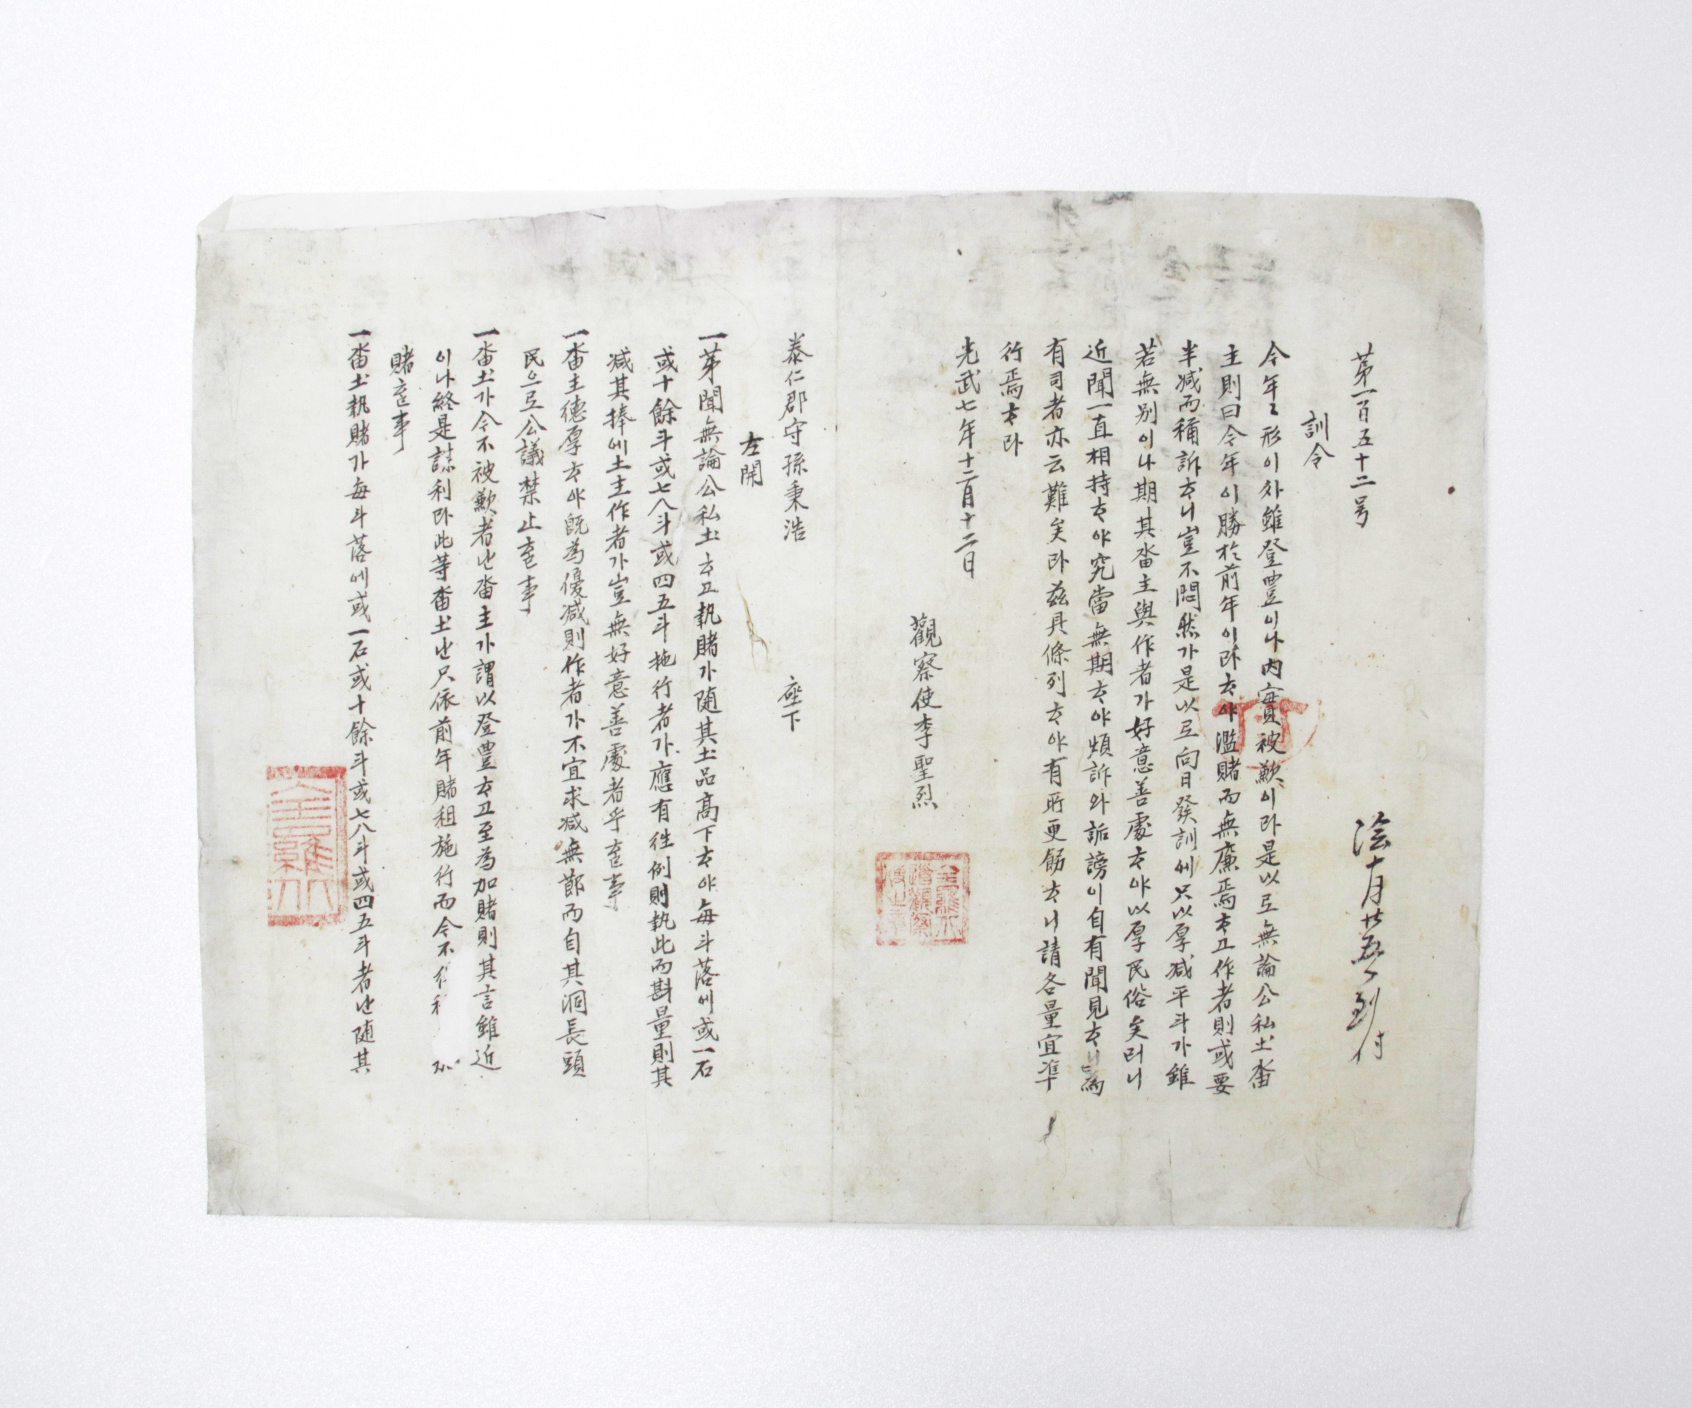 第一百五十二号
陰十月廿五日到付
訓令
今年 形이外雖登豊이나內實被歉이라是以로無論公私土畓
主則曰今年이勝於前年이라ᄒᆞ야濫賭而無廉焉ᄒᆞ고作者則或要
半减而稱訴ᄒᆞ니豈不悶然가是以로向日發訓에只以厚减平斗가雖
若無別이나期其畓主與作者가好意善處ᄒᆞ야以厚民俗矣러니
近聞一直相持ᄒᆞ야究當無期ᄒᆞ야煩訴와詬謗이自有聞見ᄒᆞ니爲
有司者亦云難矣라玆具條列ᄒᆞ야有所更飭ᄒᆞ니請各量宜準
行焉ᄒᆞ라
光武七年十二月十二日
觀察使李聖烈
泰仁郡守孫秉浩 座下
左開
一第聞無論公私土ᄒᆞ고執賭가隨其土品高下ᄒᆞ야每斗落에或一石
或十餘斗或七八斗或四五斗施行者가應有徃例則執此而斟量則其
减其捧에土主作者가豈無好意善處者乎 事
一畓主德厚ᄒᆞ야旣爲優减則作者가不宜求减無節而自其洞長頭
民으로公議禁止 事
一畓土가今不被歉者난畓主가謂以登豊ᄒᆞ고至爲加賭則其言雖近
이나終是 利라此等畓土난只依前年賭租施行而今不
賭 事
一畓土執賭가每斗落에或一石或十餘斗或七八斗或四五斗者난隨其